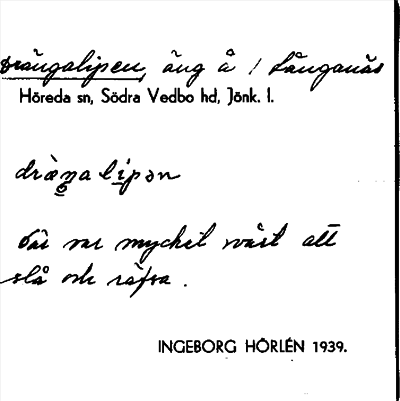 Drängalipen, äng å / Långanäs
Höreda sn, Södra Vedbo hd, Jönk. l.
dràŋalipən
där var mycket svårt att
slå och räfsa.
INGEBORG HÖRLÉN 1939.